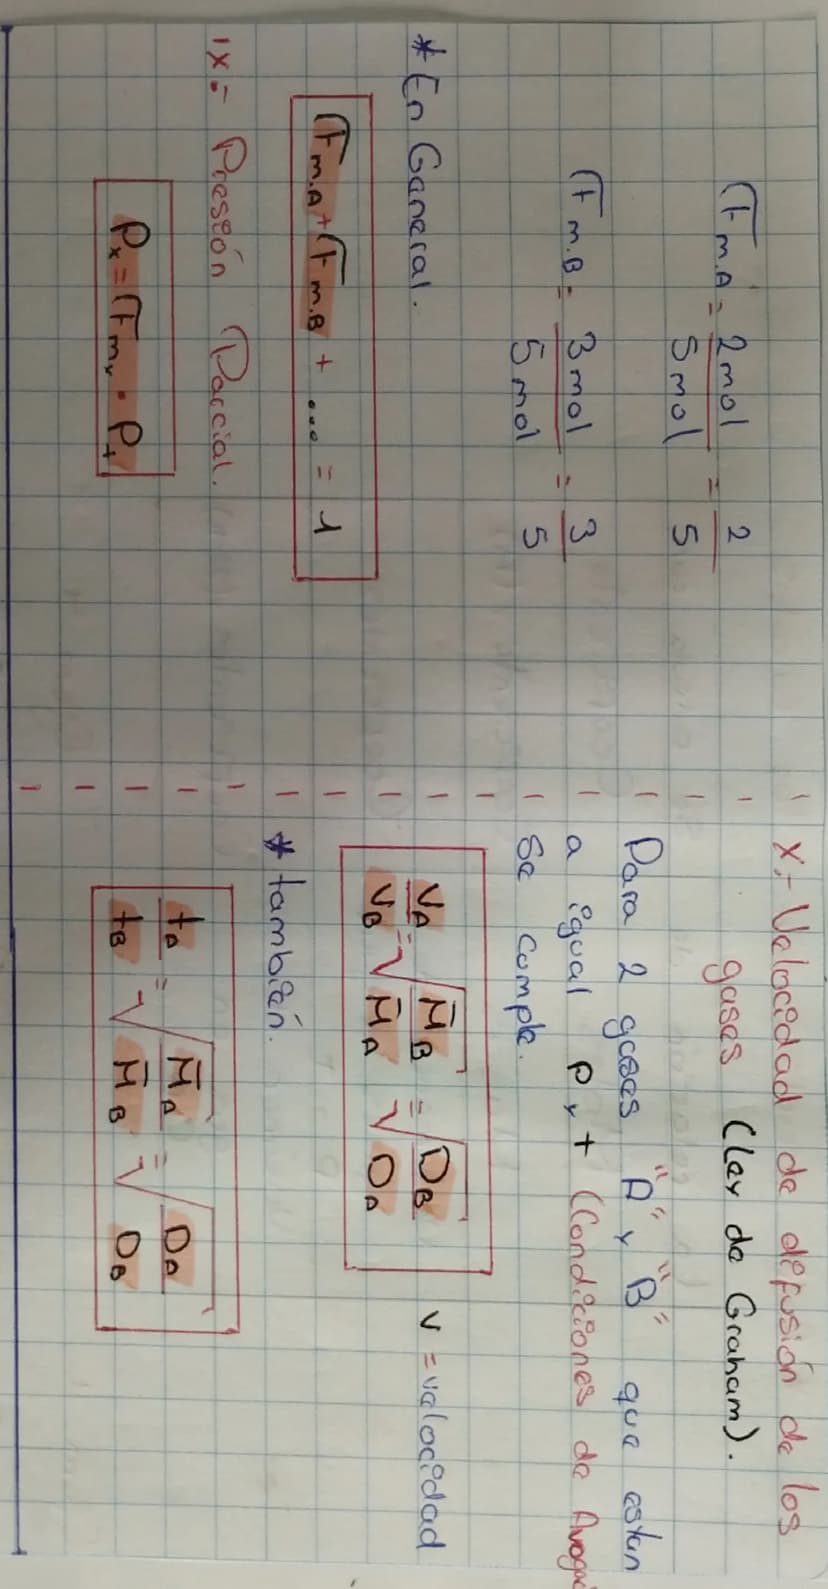 Fm.A = 2mol/5mol = 2/5
Fm.B = 3mol/5mol = 3/5
* En General.
Fm.A + Fm.B + ... = 1
IX.- Presión Parcial.
Px = Fmx . Pt
X.- Velocidad de difusión de los
gases (Ley de Graham).
Para 2 gases "A" y "B" que estan
a igual P y t (Condiciones de
se cumple.
VA/VB = √(M̄B/M̄A) = √(DB/DA) v = velocidad
* también.
tA/tB = √(M̄A/M̄B) = √(DA/DB)